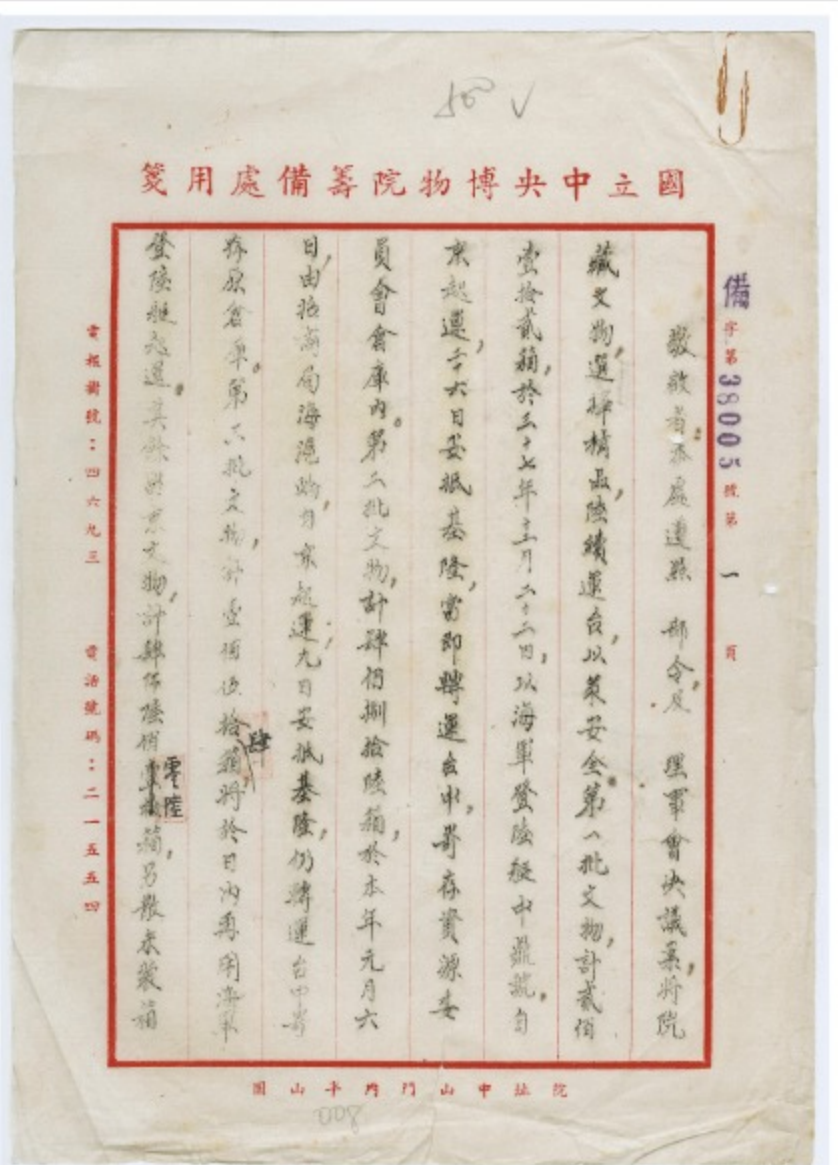 50 V
國立中央博物院籌備處用箋
備字第38005號第一頁
敬啟者本處遵照 部令及 理事會決議案，將院
藏文物，選擇精品，陸續運台，以策安全。第一批文物，計貳佰
壹拾貳箱，於三十七年十二月二十二日，以海軍登陸艇中鼎號，自
京起運，二十六日安抵基隆，當即轉運台中，寄存資源委
員會倉庫內。第二批文物，計肆佰捌拾陸箱，於本年元月六
日，由招商局海滬輪自京起運，九日安抵基隆，仍轉運台中寄
存原倉庫。第三批文物，計壹佰伍拾肆箱將於日內再用海軍
登陸艇起運。其餘留京文物，計肆仟陸佰零陸箱，另散未裝箱
電報掛號：四六九三 電話號碼：二一五五四
院址中山門內半山園
008